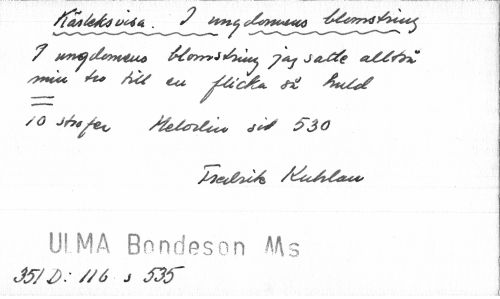 Kärleksvisa. I ungdomens blomstring
I ungdomens blomstring jag satte alltså
min tro till en flicka så huld
10 strofer Melodin sid 530
Fredrik Kuhlau
ULMA Bondeson Ms
351 D: 116 s 535